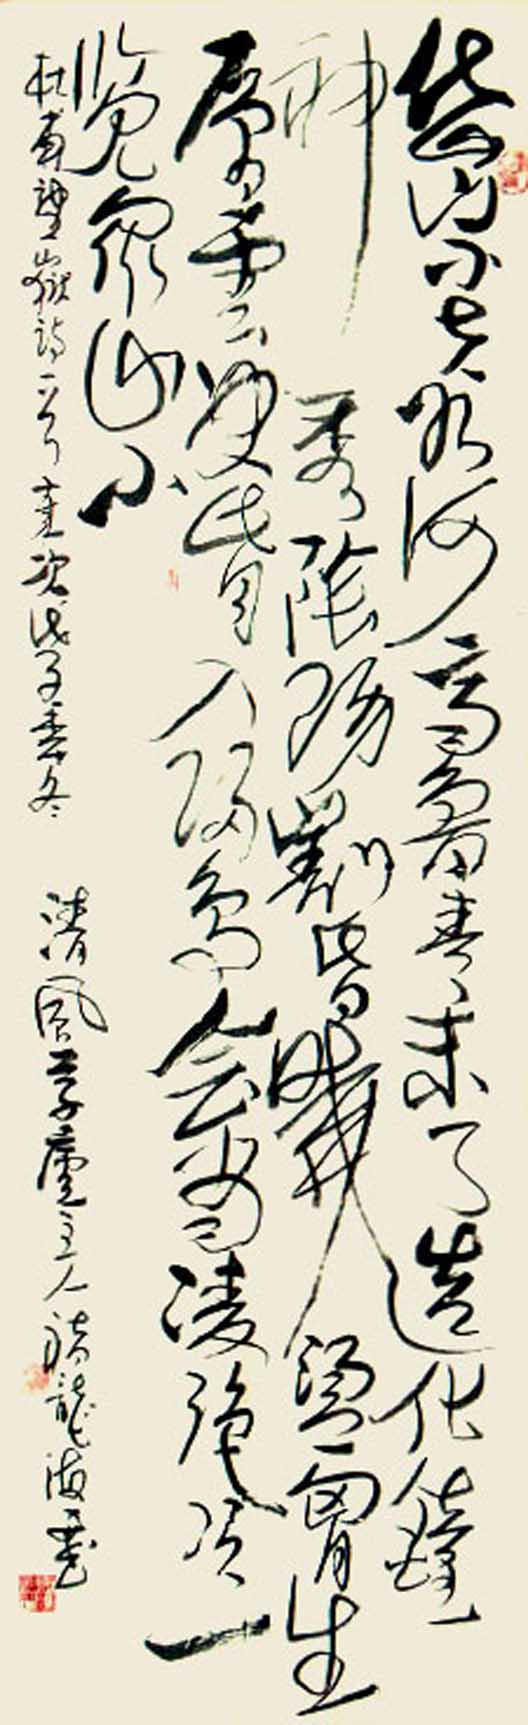 岱宗夫如何齊魯青未了造化鍾
神秀陰陽割昏曉盪胸生
層雲決眥入歸鳥會當凌絕頂一
覽眾山小
杜甫望嶽詩一首歲次戊子季冬 清風草廬主人龍海書